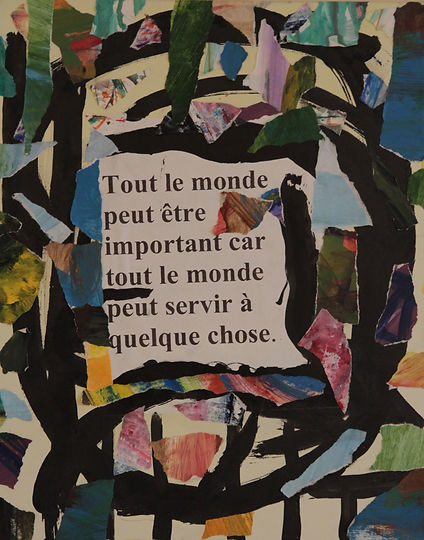 Tout le monde
peut être
important car
tout le monde
peut servir à
quelque chose.